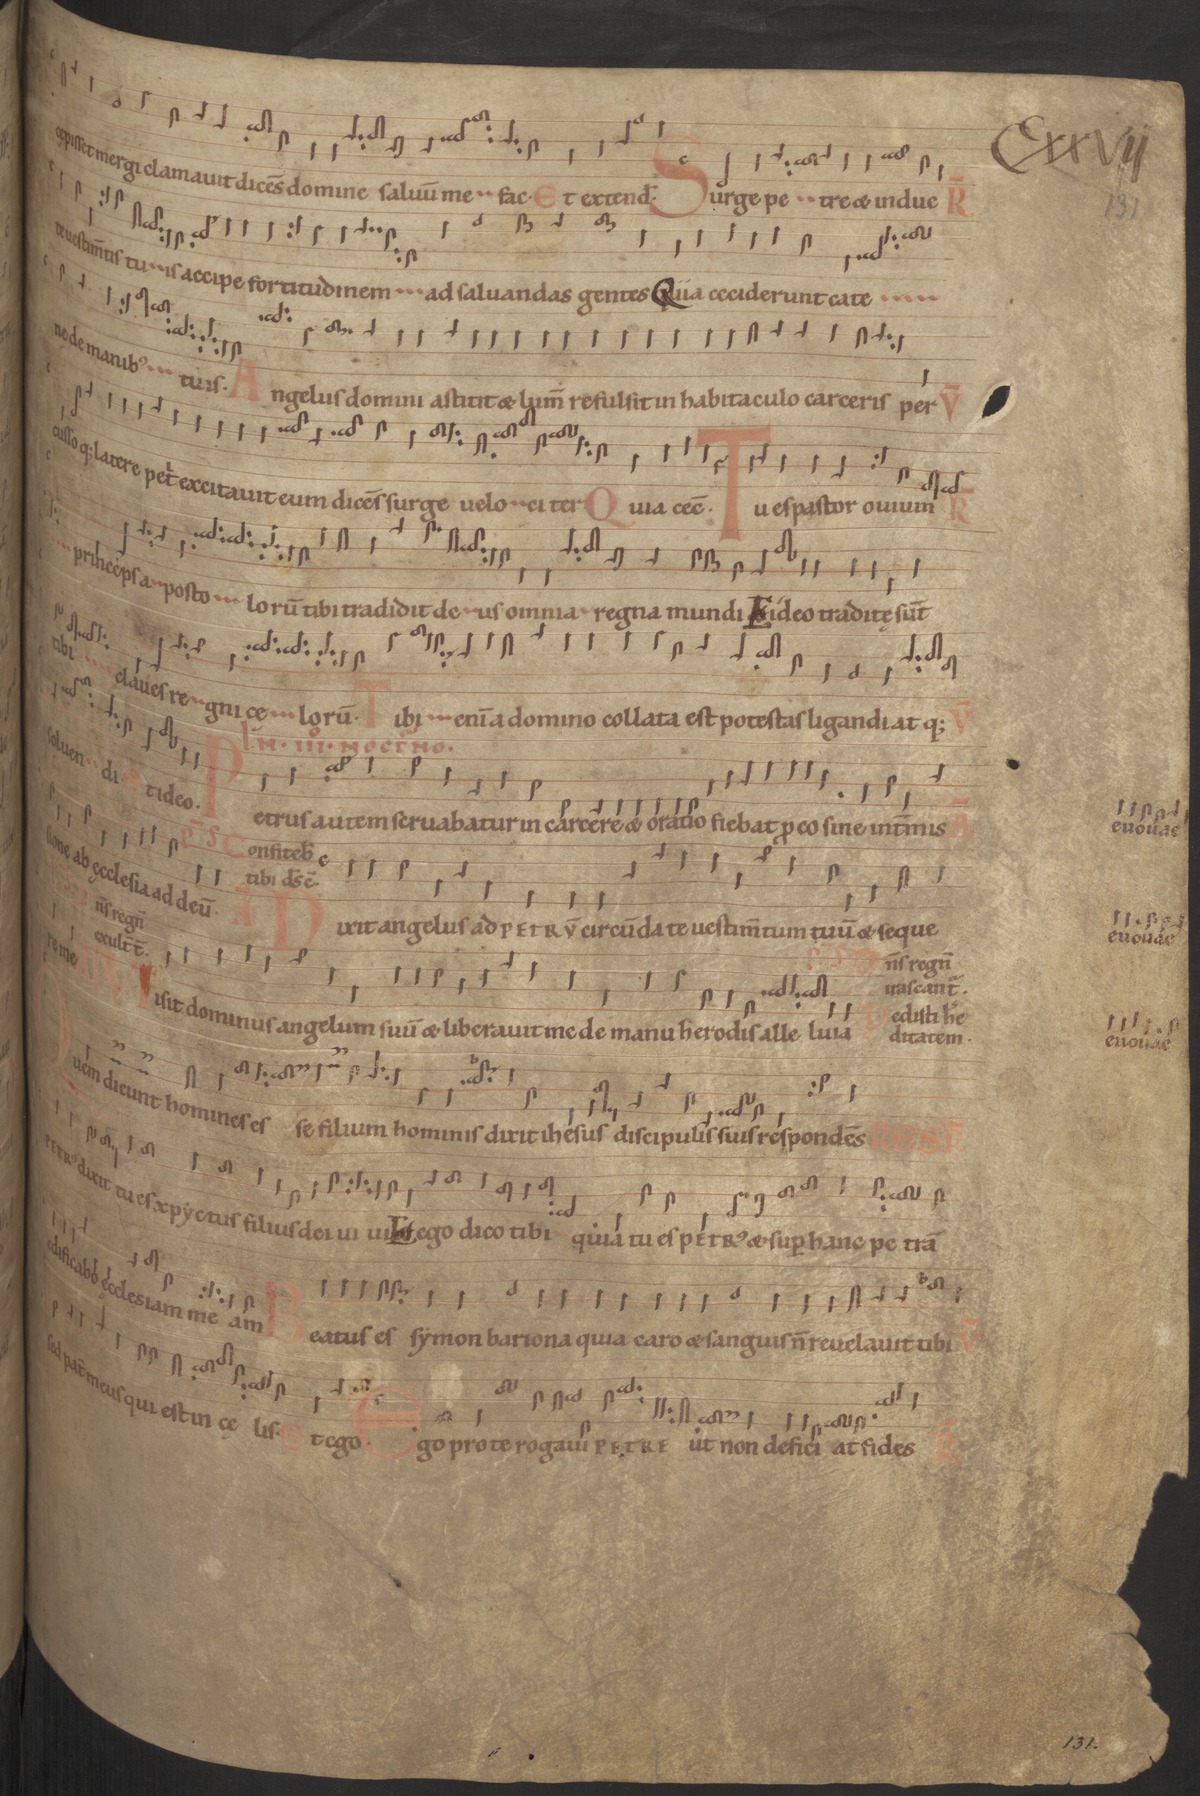 CXXVII
131
cepisset mergi clamauit dicēs domine saluū me fac. Et extend̄. Surge pe tre & indue R̄
te uestim̄tis tu is accipe fortitudinem ad saluandas gentes Quia ceciderunt cate
ne de manib⁹ tuis. Angelus domini astitit & lum̄ refulsit in habitaculo carceris per V̄
cusso q; latere pet̄ excitauit eum dicēs surge uelo citer Quia cec̄. Tu es pastor ouium R̄
princeps a posto lorū tibi tradidit de us omnia regna mundi Et ideo traditę sūt
tibi claues re gni cę lorū. Tibi enī a domino collata est potestas ligandi at q; V̄
soluen di Et ideo. IN. III. NOCTNO.
Petrus autem seruabatur in carcere & oratio fiebat ꝑ eo sine int̄mis A̅
euouae
sione ab ęcclesia ad deū. PS Confiteb̄ tibi d̄s c̄.
A̅ Dixit angelus ad PETRV̄ circūda te uestim̄tum tuū & seque
euouae
re me n̄s regn̄ exult̄t.
n̄s regn̄ nascant̄.
Misit dominus angelum suū & liberauit me de manu herodis alle luia Dedisti he ditatem.
euouae
Quem dicunt homines es se filium hominis dixit ihesus discipulis suis respondēs
PETR⁹ dixit tu es xp̄ectus filius dei ui ui Et ego dico tibi quia tu es PETR⁹ & sup̄ hanc pe trā
edificabo ęcclesiam me am Beatus es sẏmon bariona quia caro & sanguis n̄ reuelauit tibi V̄
sed pat̄ meus qui est in cę lis. Et ego. Ego pro te rogaui PETRE ut non defici at fides R̄
131.